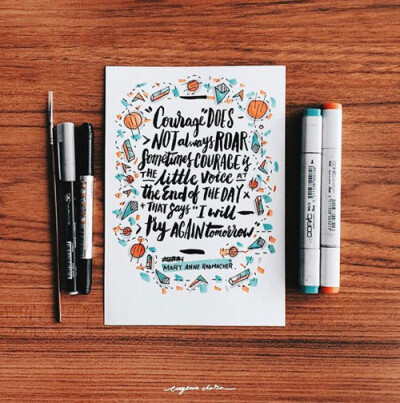 "Courage DOES
NOT always ROAR.
Sometimes COURAGE is
THE little voice AT
the end of THE DAY
THAT SAYS "I will
try AGAIN tomorrow."
MARY ANNE RADMACHER
COPIC
COPIC